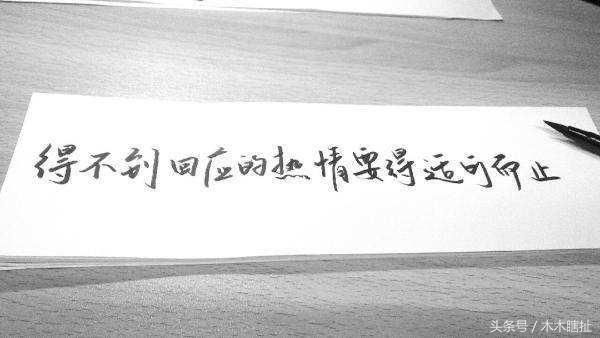 得不到回应的热情要得适可而止
头条号 / 木木瞎扯